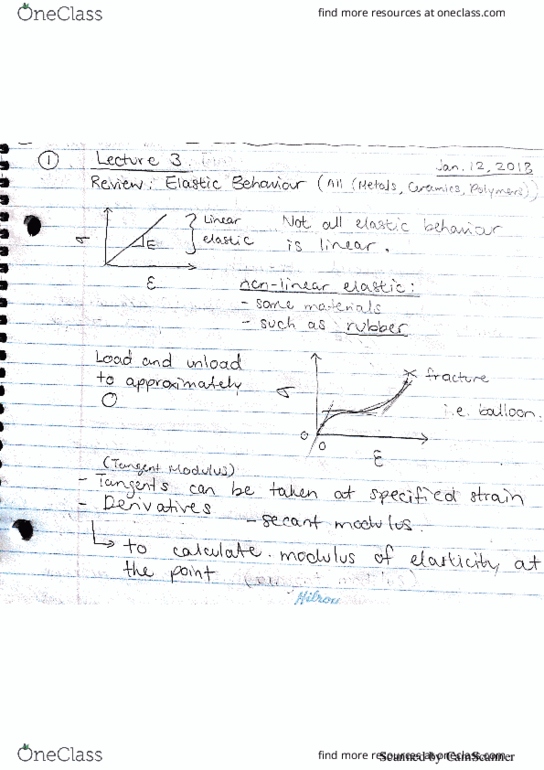 OneClass
find more resources at oneclass.com
① Lecture 3
Jan. 12, 2013
Review: Elastic Behaviour (All (Metals, Ceramics, Polymers))
σ
E
ε
Linear
elastic
Not all elastic behaviour
is linear.
non-linear elastic:
- some materials
- such as rubber
Load and unload
to approximately
0
σ
fracture
i.e. balloon.
0
0
ε
(Tangent Modulus)
- Tangents can be taken at specified strain
- Derivatives
- secant modulus.
↳ to calculate modulus of elasticity at
the point
Hilroy
OneClass
find more resources at oneclass.com
Scanned by CamScanner